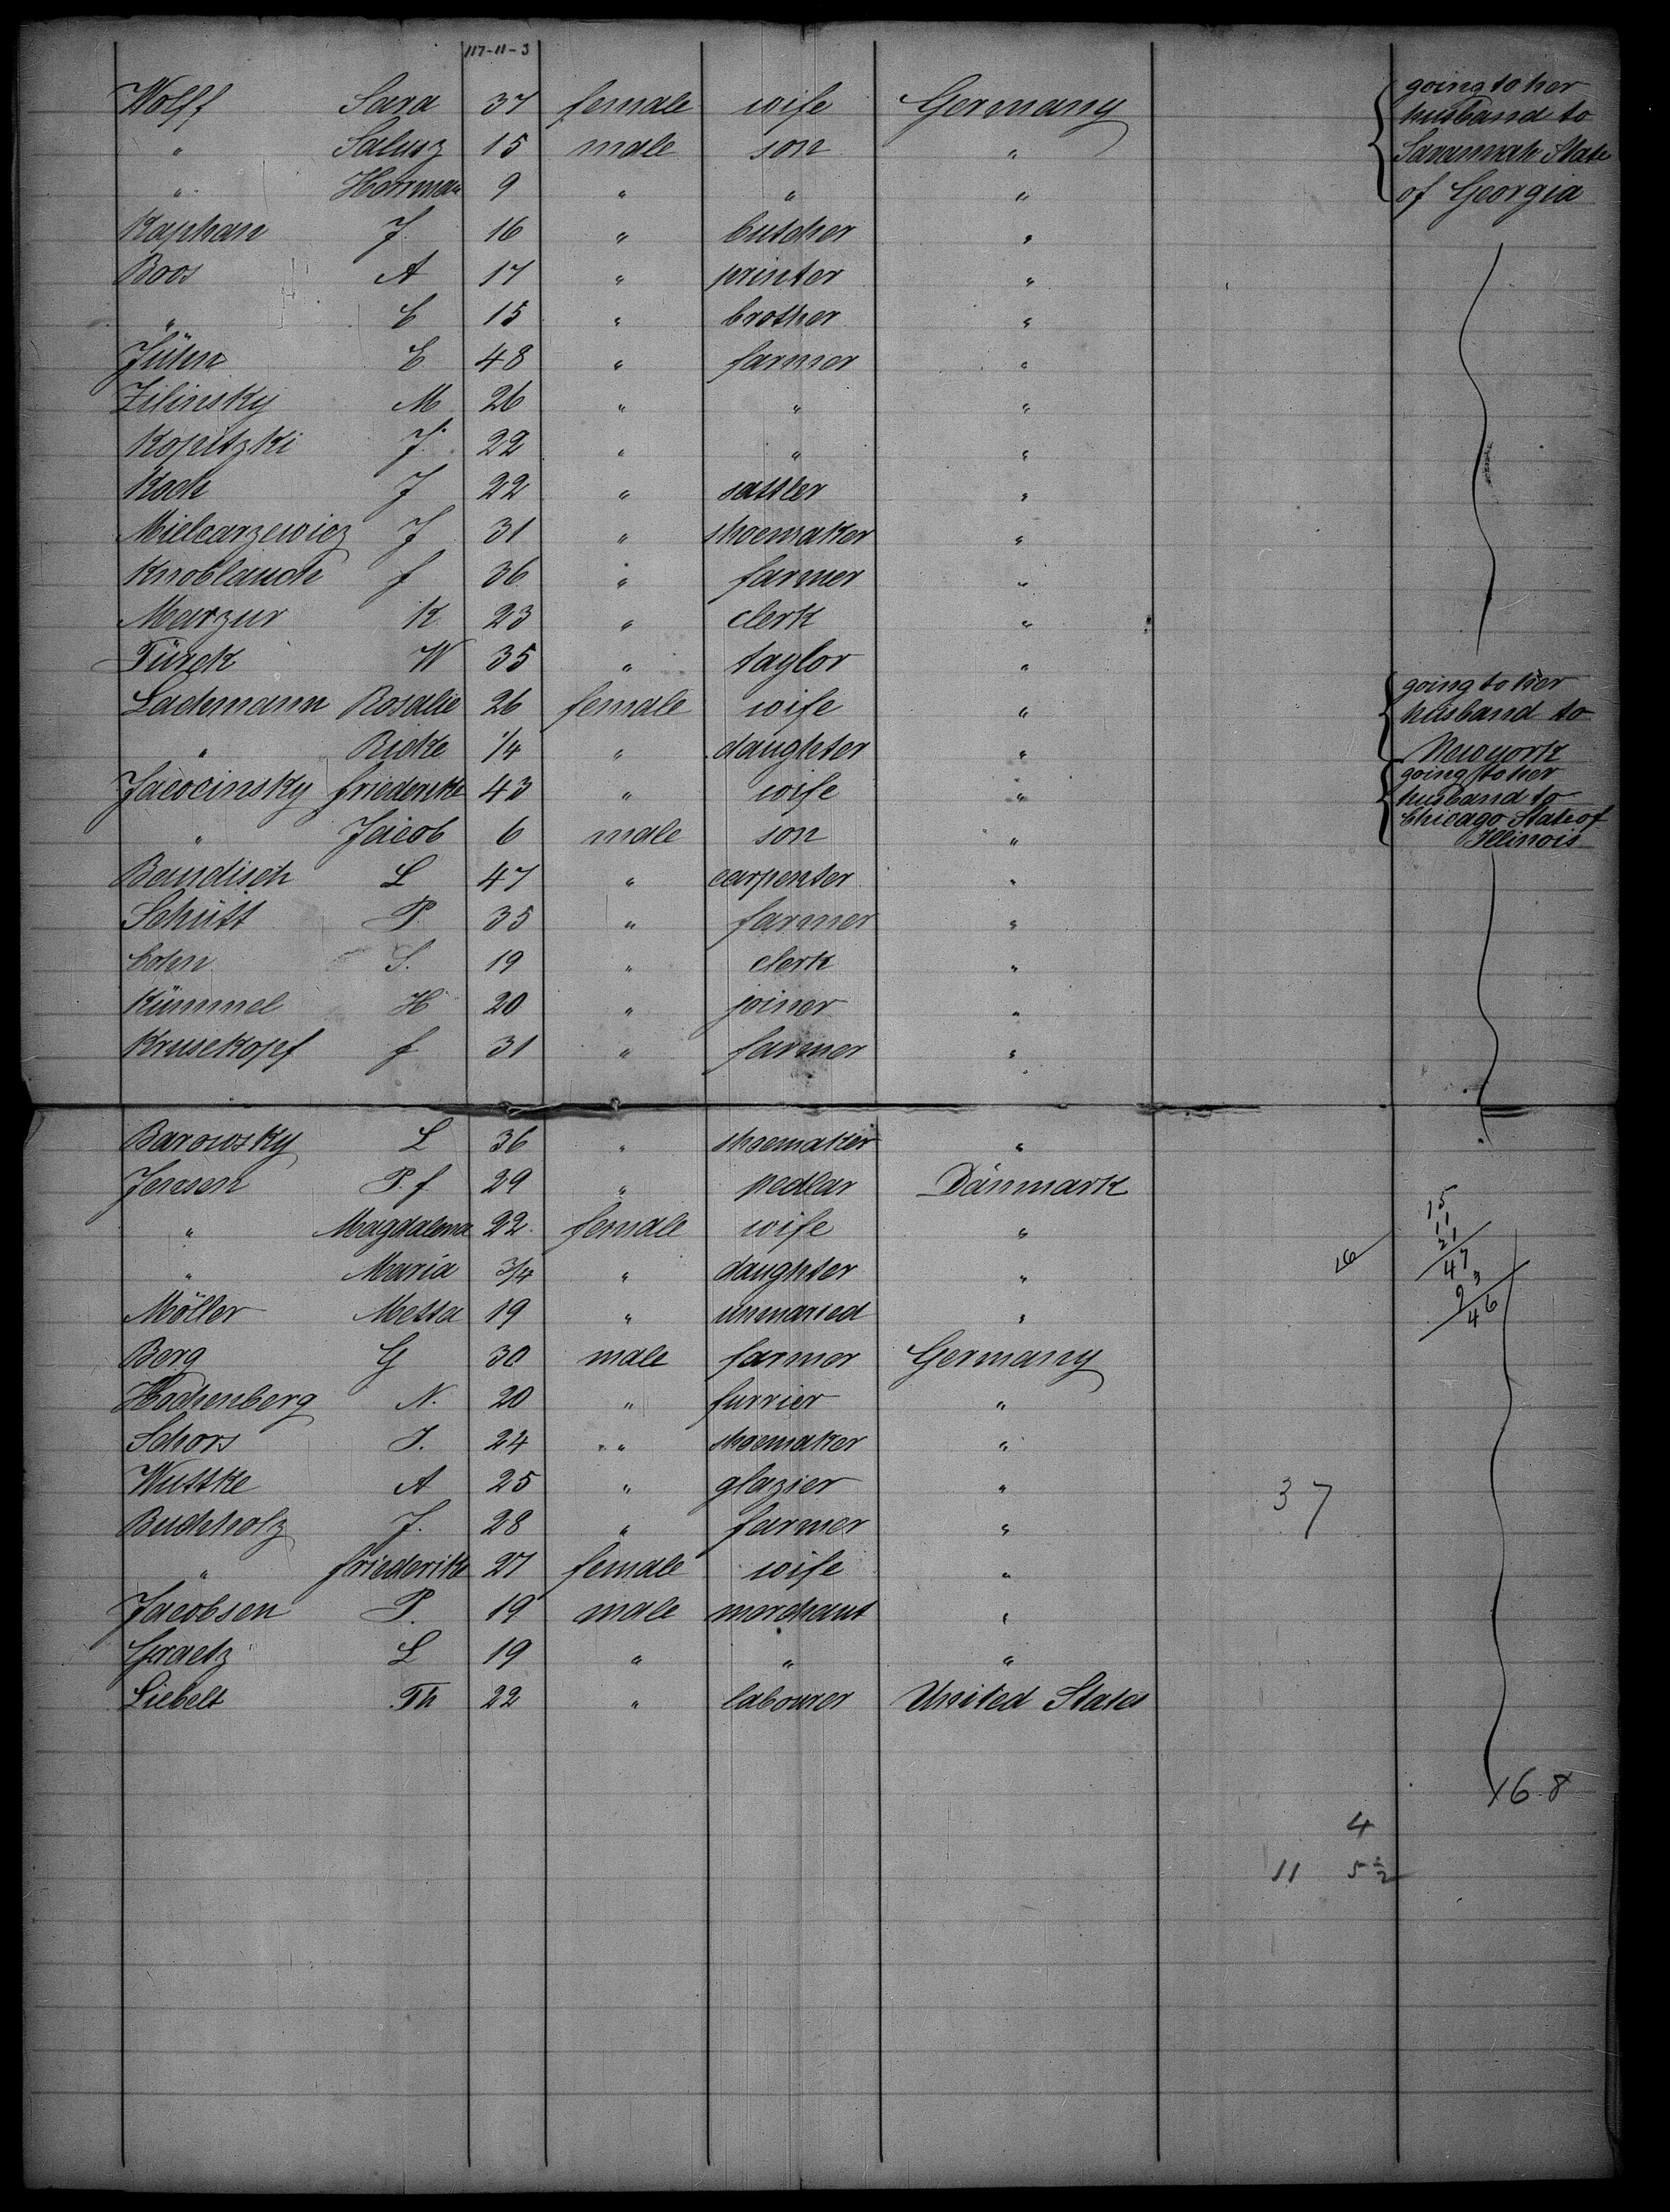 117-11-3
Wolff Sara 37 female wife Germany going to her
husband to
" Saluoz 15 male son " Savannah State
" Herrman 9 " " " of Georgia
Kaphan J. 16 " butcher "
Boos A 17 " printer "
" C 15 " brother "
Jühn C 48 " farmer "
Zilinsky M 26 " " "
Kopitzki J. 22 " " "
Koch J 22 " sattler "
Mielcarzewicz J 31 " shoemaker "
Knoblauch f 36 " farmer "
Marzur K 23 " clerk "
Türck W 35 " taylor "
going to her
Lachmann Rosalie 26 female wife " husband to
" Ricke 1/4 " daughter " Newyork
going to her
Jacocinsky friederike 43 " wife " husband to
Chicago State of
" Jacob 6 male son " Illinois
Baudisch L 47 " carpenter "
Schütt P. 35 " farmer "
Cohn S. 19 " clerk "
Kümmel H 20 " joiner "
Krusekopf f 31 " farmer "
Barowsky L 36 " shoemaker "
Jensen P. f 29 " pedlar Dänmark
15
11
" Magdalena 22 female wife "
21
" Maria 3/4 " daughter " 16 47
Möller Metta 19 " unmaried "
46
Berg G 30 male farmer Germany
Hochenberg N. 20 " furrier "
Schors J. 24 " shoemaker "
Wuttke A 25 " glazier " 37
Buchholz J. 28 " farmer "
" friederike 27 female wife "
Jacobsen P. 19 male merchant "
Graetz L 19 " " "
Liebelt Th 22 " labourer United States
168
4
11 5½